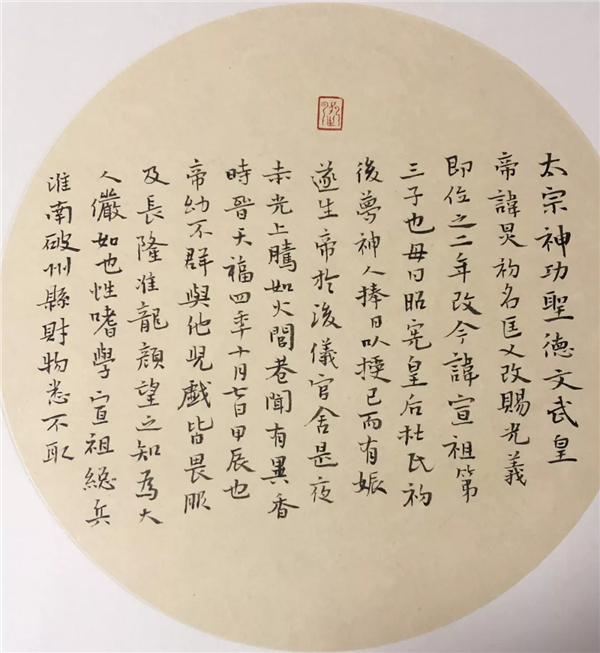 太宗神功聖德文武皇
帝諱炅初名匡乂改賜光義
即位之二年改今諱宣祖第
三子也母曰昭宪皇后杜氏初
後夢神人捧日以授已而有娠
遂生帝於浚儀官舍是夜
赤光上騰如火閭巷聞有異香
時晉天福四年十月七日甲辰也
帝幼不群與他児戲皆畏服
及長隆准龍顔望之知為大
人儼如也性嗜學宣祖總兵
淮南破州縣財物悉不取